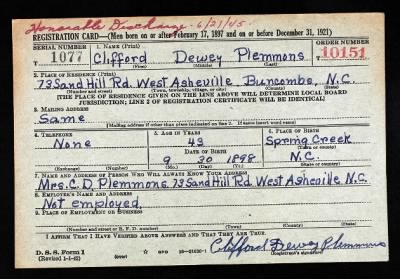 Honorable Discharge - 6/21/45.
REGISTRATION CARD—(Men born on or after February 17, 1897 and on or before December 31, 1921)
SERIAL NUMBER 1. NAME (Print) ORDER NUMBER
T 1077 Clifford Dewey Plemmons 10151
(First) (Middle) (Last)
2. PLACE OF RESIDENCE (Print)
73 Sand Hill Rd. West Asheville, Buncombe, N.C.
(Number and street) (Town, township, village, or city) (County) (State)
[THE PLACE OF RESIDENCE GIVEN ON THE LINE ABOVE WILL DETERMINE LOCAL BOARD
JURISDICTION; LINE 2 OF REGISTRATION CERTIFICATE WILL BE IDENTICAL]
3. MAILING ADDRESS
Same
[Mailing address if other than place indicated on line 2. If same insert word same]
4. TELEPHONE 5. AGE IN YEARS 6. PLACE OF BIRTH
None 43 Spring Creek
DATE OF BIRTH (Town or county)
9 20 1898 N.C.
(Exchange) (Number) (Mo.) (Day) (Yr.) (State or country)
7. NAME AND ADDRESS OF PERSON WHO WILL ALWAYS KNOW YOUR ADDRESS
Mrs. C. D. Plemmons. 73 Sand Hill Rd. West Asheville N.C.
8. EMPLOYER'S NAME AND ADDRESS
Not employed,
9. PLACE OF EMPLOYMENT OR BUSINESS
(Number and street or R. F. D. number) (Town) (County) (State)
I AFFIRM THAT I HAVE VERIFIED ABOVE ANSWERS AND THAT THEY ARE TRUE.
D. S. S. Form 1 Clifford Dewey Plemmons
(Revised 1-1-42) (Registrant's signature)